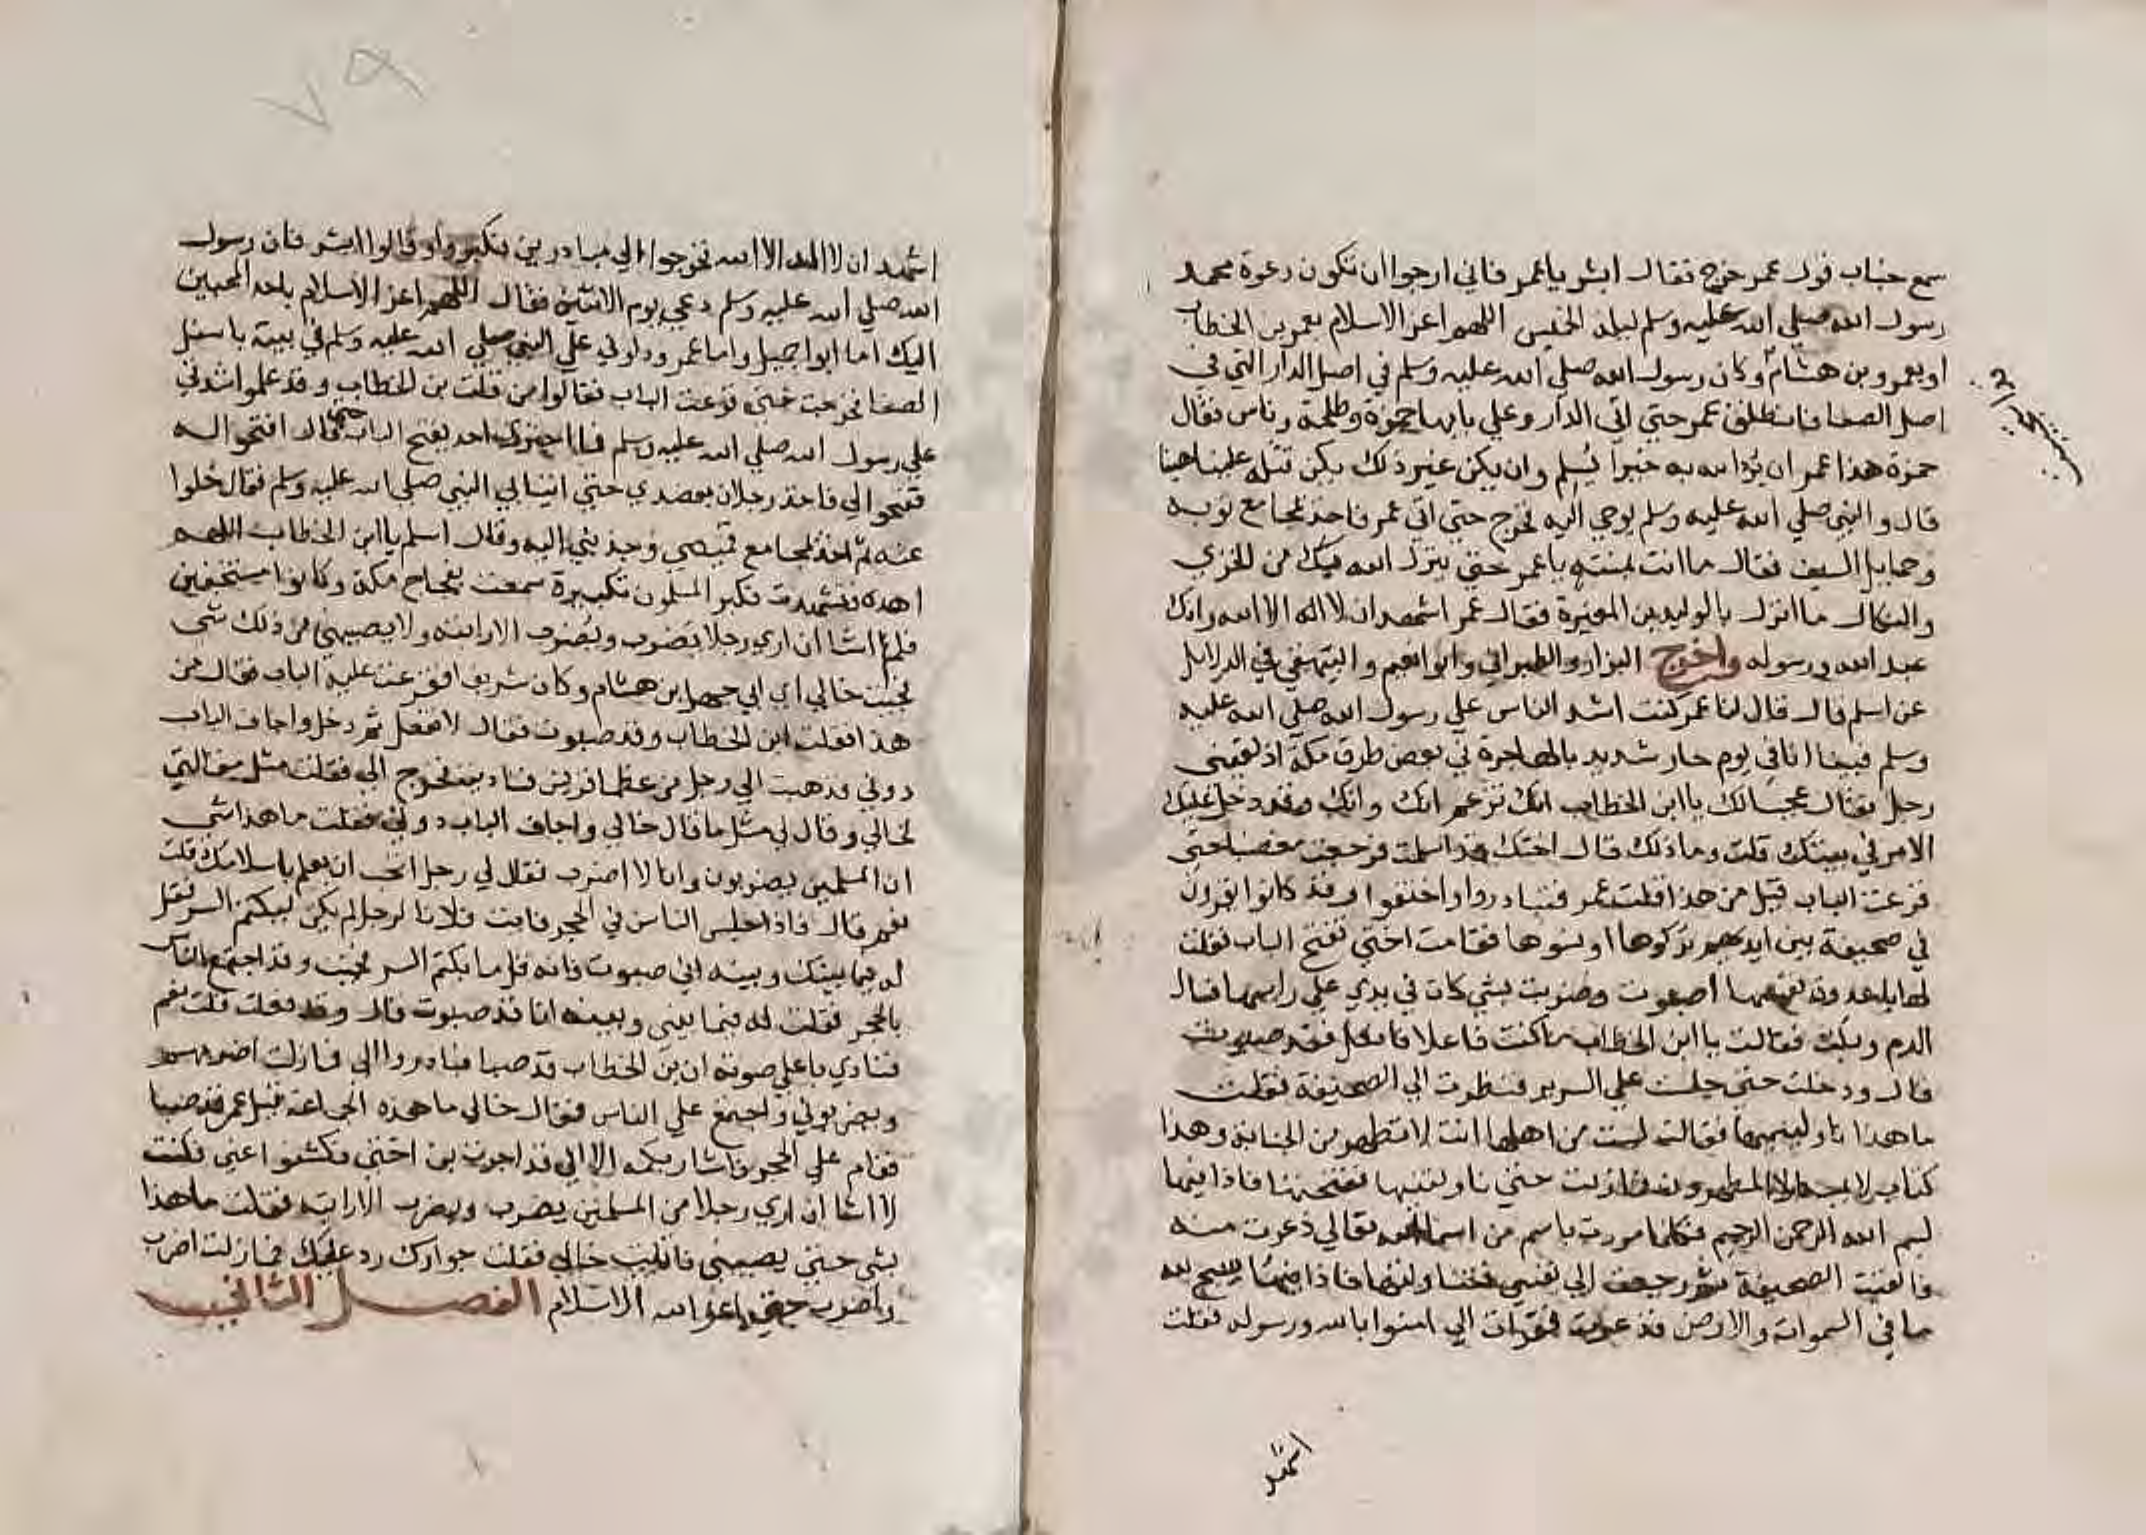 سمع خباب قول عمر خرج فقال ابشر يا عمر فاني ارجوا ان تكون دعوة محمد
رسول الله صلي الله عليه وسلم ليلة الخميس اللهم اعز الاسلام بعمر بن الخطاب
او بعمرو بن هشام وكان رسول الله صلي الله عليه وسلم في اصل الدار التي في
اصل الصفا فانطلق عمر حتي اتي الدار وعلي بابها حمزة وطلحة وناس فقال
حمزة هذا عمر ان يرد الله به خيرا يسلم وان يكن غير ذلك يكن قتله علينا هينا
قال والنبي صلي الله عليه وسلم يوحي اليه فخرج حتي اتي عمر فاخذ بمجامع ثوبه
وحمايل السيف فقال ما انت بمنته يا عمر حتي ينزل الله بك من الخزي
والنكال ما انزل بالوليد بن المغيرة فقال عمر اشهد ان لا اله الا الله وانك
عبد الله ورسوله واخرج البزار والطبراني وابو انعيم والبيهقي في الدلايل
عن اسلم قال قال لنا عمر كنت اشد الناس علي رسول الله صلي الله عليه
وسلم فبينا انا في يوم حار شديد بالهاجرة في بعض طرق مكة اذ لقيني
رجل فقال عجبا لك يا ابن الخطاب انك تزعم انك وانك وقد دخل عليك
الامر في بيتك قلت وما ذلك قال اختك قد اسلمت فرجعت مغضبا حتي
قرعت الباب قيل من هذا قلت عمر فتبادروا واختفوا وقد كانوا يقرؤن
في صحيفة بين ايديهم تركوها او نسوها فقامت اختي تفتح الباب فقلت
لها يا عدوة نفسها اصبوت وضربت بشي كان في يدي علي راسها فسال
الدم وبكت فقالت يا ابن الخطاب ما كنت فاعلا فافعل فقد صبوت
قال ودخلت حتي جلست علي السرير فنظرت الي الصحيفة فقلت
ما هذا ناوليتيها فقالت لست من اهلها انت لا تطهر من الجنابة وهذا
كتاب لا يمسه الا المطهرون فما زلت حتي ناولتنيها ففتحتها فاذا فيها
بسم الله الرحمن الرحيم فكلما مررت باسم من اسما الله تعالي ذعرت منه
فالقيت الصحيفة ثم رجعت الي نفسي فتناولتها فاذا فيها يسبح لله
ما في السموات والارض فذعرت فقرات الي امنوا بالله ورسوله فقلت
اشهد
٧٩
اشهد ان لا اله الا الله فخرجوا الي مبادرين فكبروا وقالوا ابشر فان رسول
الله صلي الله عليه وسلم دعي يوم الاثنين فقال اللهم اعز الاسلام باحد المحبين
اليك اما ابوا جهل واما عمر ودلوني علي النبي صلي الله عليه وسلم في بيته باسفل
الصفا فخرجت حتي قرعت الباب فقالوا من قلت بن الخطاب وقد علموا شدتي
علي رسول الله صلي الله عليه وسلم فما اجتري احد يفتح الباب حتي قال افتحوا له
ففتحوا الي فاخذ رجلان بعضدي حتي اتيا بي النبي صلي الله عليه وسلم فقال خلوا
عنه ثم اخذ بمجامع قميصي وجذبني اليه وقال اسلم يا ابن الخطاب اللهم
اهده فتشهدت فكبر المسلمون تكبيرة سمعت بفجاج مكة وكانوا مستخفين
فلم اشا ان اري رجلا يضرب ويضرب الا رايته ولا يصيبني من ذلك شي
فجيت خالي اي ابي جهل بن هشام وكان شريفا فقرعت عليه الباب فقال من
هذا فقلت ابن الخطاب وقد صبوت فقال لا تفعل ثم دخل واجاف الباب
دوني فذهبت الي رجل من عظما قريش فناديته فخرج الي فقلت مثل مقالتي
لخالي وقال لي مثل ما قال خالي واجاف الباب دوني فقلت ما هذا شي
ان المسلمين يضربون وانا لا اضرب فقال لي رجل اتحب ان يعلم باسلامك قلت
نعم قال فاذا جلس الناس في الحجر فات فلانا لرجل لم يكن ليكتم السر فقل
له فيما بينك وبينه اني صبوت فانه قل ما يكتم السر فجيت وقد اجتمع الناس
بالحجر فقلت له فيما بيني وبينه انا قد صبوت قال وقد فعلت قلت نعم
فنادي باعلي صوته ان بن الخطاب قد صبا فبادروا الي فمازلت اضربهم
ويضربوني واجتمع علي الناس فقال خالي ما هذه الجماعة قيل عمر قد صبا
فقام علي الحجر فاشار بكمه الا اني قد اجرت بن اختي فكشفوا عني فكنت
لا اشا ان اري رجلا من المسلمين يضرب ويضرب الا رايته فقلت ما هذا
بشي حتي يصيبني فاتيت خالي فقلت جوارك رد عليك فما زلت اضرب
واضرب حتي اعز الله الاسلام الفصل الثاني